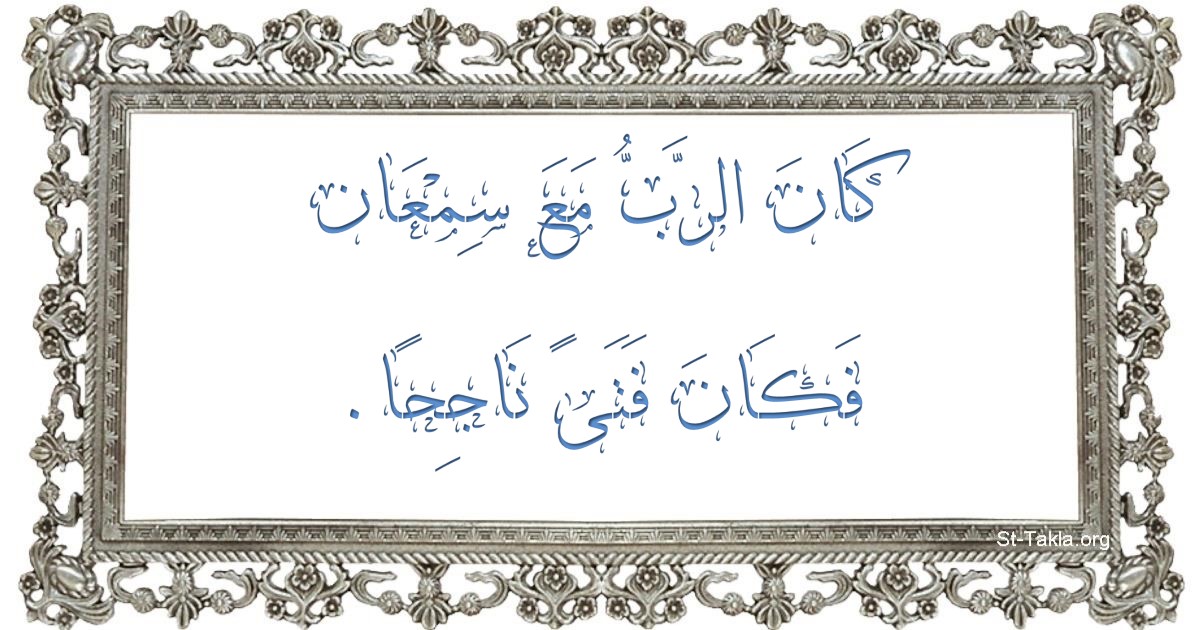 كَانَ الرَّبُّ مَعَ سِمْعَان
فَكَانَ فَتَىً نَاجِحًا .
St-Takla.org